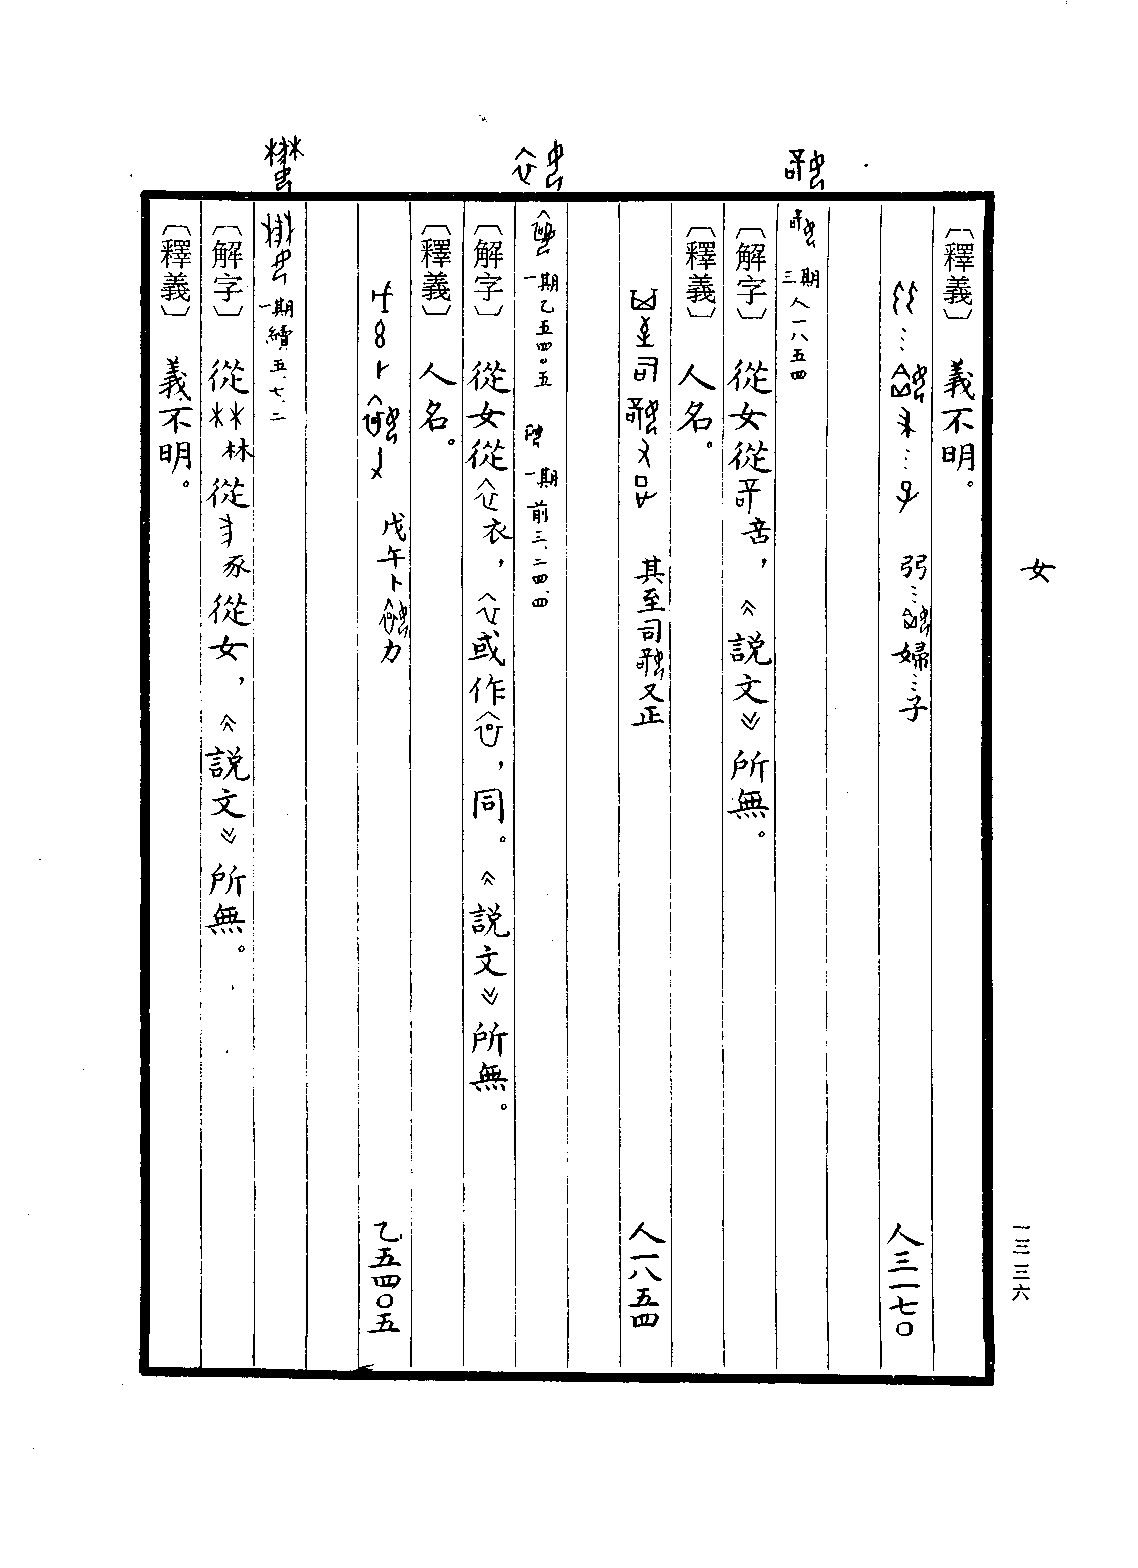 女
一三三六
〔釋義〕 義不明。
弜…婦…子 人三一七〇
三期 人一八五四
〔解字〕 從女從䇂,《説文》所無。
〔釋義〕 人名。
其至司又正 人一八五四
一期 乙五四〇五 一期 前三.二四.四
〔解字〕 從女從衣,或作,同。《説文》所無。
〔釋義〕 人名。
戊午卜力 乙五四〇五
一期 續五.七.二
〔解字〕 從林從豕從女,《説文》所無。
〔釋義〕 義不明。